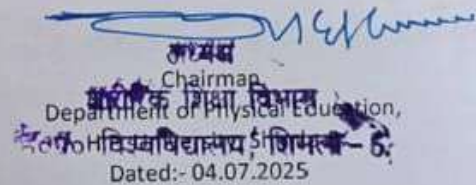 अध्यक्ष
Chairman
शारीरिक शिक्षा विभाग
Department of Physical Education,
विश्वविद्यालय, शिमला – 5.
Dated:- 04.07.2025